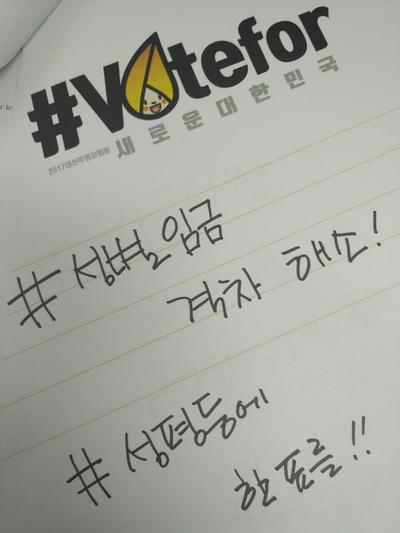 r.kr
#Votefor
새로운 대한민국
2017대선주권자행동
#성별임금
격차 해소!
#성평등에
한 표를!!